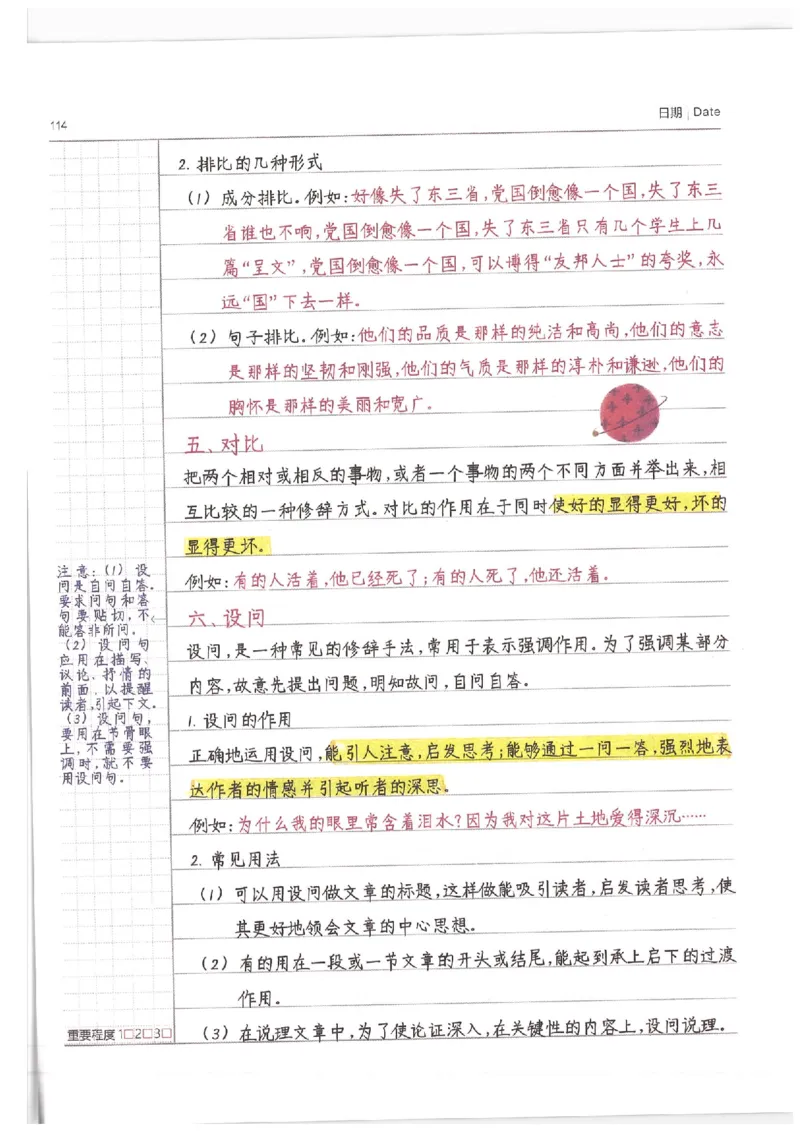 114
日期 Date
2. 排比的几种形式
(1) 成分排比。例如:好像失了东三省,党国倒愈像一个国,失了东三
省谁也不响,党国倒愈像一个国,失了东三省只有几个学生上几
篇“呈文”,党国倒愈像一个国,可以博得“友邦人士”的夸奖,永
远“国”下去一样。
(2) 句子排比。例如:他们的品质是那样的纯洁和高尚,他们的意志
是那样的坚韧和刚强,他们的气质是那样的淳朴和谦逊,他们的
胸怀是那样的美丽和宽广。
五、对比
把两个相对或相反的事物,或者一个事物的两个不同方面并举出来,相
互比较的一种修辞方式。对比的作用在于同时使好的显得更好,坏的
显得更坏。
例如:有的人活着,他已经死了;有的人死了,他还活着。
六、设问
设问,是一种常见的修辞手法,常用于表示强调作用。为了强调某部分
内容,故意先提出问题,明知故问,自问自答。
1. 设问的作用
正确地运用设问,能引人注意,启发思考;能够通过一问一答,强烈地表
达作者的情感并引起听者的深思。
例如:为什么我的眼里常含着泪水?因为我对这片土地爱得深沉……
2. 常见用法
(1) 可以用设问做文章的标题,这样做能吸引读者,启发读者思考,使
其更好地领会文章的中心思想。
(2) 有的用在一段或一节文章的开头或结尾,能起到承上启下的过渡
作用。
(3) 在说理文章中,为了使论证深入,在关键性的内容上,设问说理。
注意:(1) 设
问是自问自答。
要求问句和答
句要贴切,不
能答非所问。
(2) 设问句
应用在描写、
议论、抒情的
前面,以提醒
读者,引起下文。
(3) 设问句,
要用在节骨眼
上,不需要强
调时,就不要
用设问句。
重要程度 1□2□3□